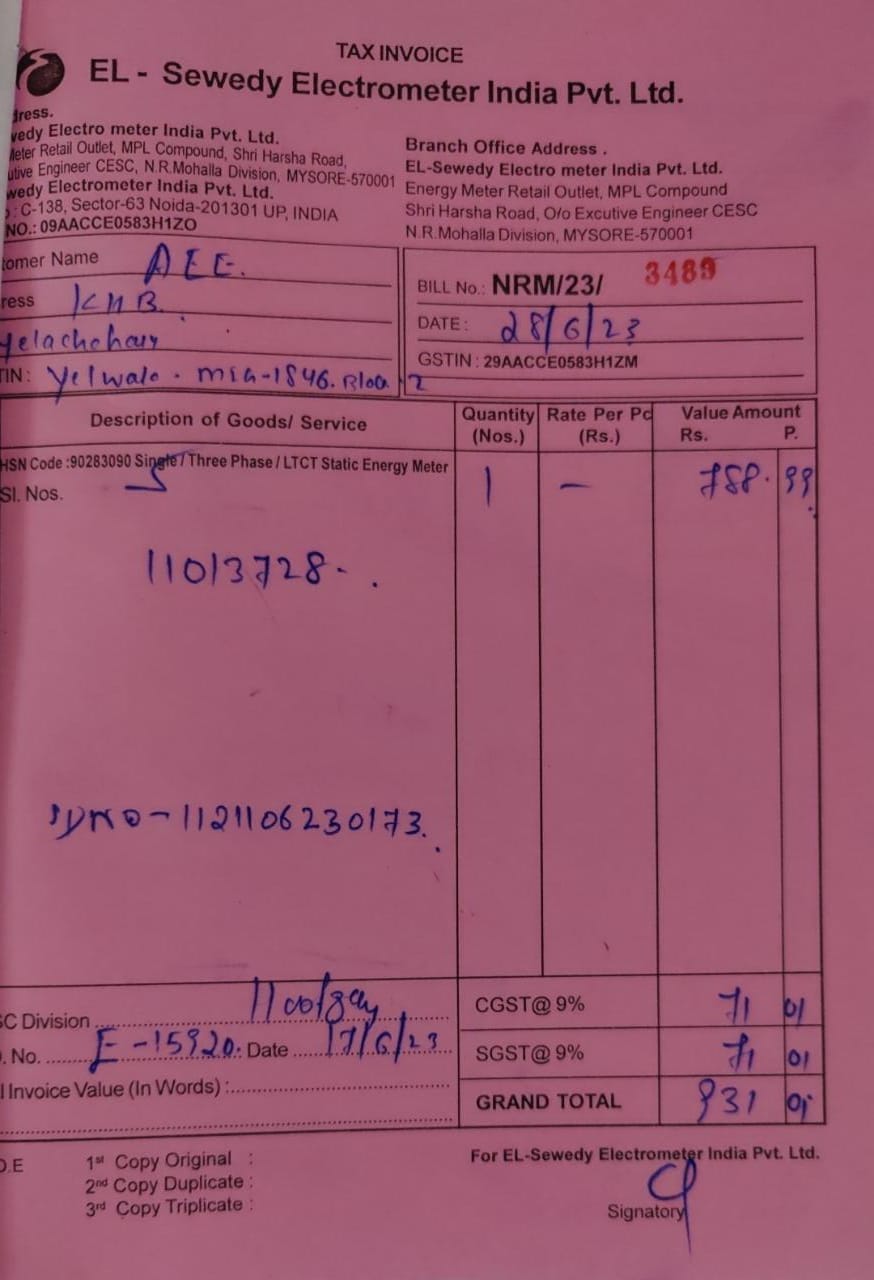 TAX INVOICE
EL - Sewedy Electrometer India Pvt. Ltd.
dress.
wedy Electro meter India Pvt. Ltd.
Meter Retail Outlet, MPL Compound, Shri Harsha Road,
utive Engineer CESC, N.R.Mohalla Division, MYSORE-570001
wedy Electrometer India Pvt. Ltd.
: C-138, Sector-63 Noida-201301 UP, INDIA
NO.: 09AACCE0583H1ZO
Branch Office Address .
EL-Sewedy Electro meter India Pvt. Ltd.
Energy Meter Retail Outlet, MPL Compound
Shri Harsha Road, O/o Excutive Engineer CESC
N.R.Mohalla Division, MYSORE-570001
tomer Name AEE.
ress KHB
TIN: Yelwala . MIG-1846. Block 2
BILL No.: NRM/23/ 3489
DATE: 28/6/23
GSTIN : 29AACCE0583H1ZM
Description of Goods/ Service Quantity (Nos.) Rate Per Pc (Rs.) Value Amount Rs. P.
HSN Code :90283090 Single / Three Phase / LTCT Static Energy Meter 1 – 788. 99
Sl. Nos.
11013728-.
IDNO-1121106230173.
SC Division
. No. E-15920. Date 17/6/23
l Invoice Value (In Words) :
CGST@ 9% 71 01
SGST@ 9% 71 01
GRAND TOTAL 931 01
O.E
1st Copy Original :
2nd Copy Duplicate :
3rd Copy Triplicate :
For EL-Sewedy Electrometer India Pvt. Ltd.
Signatory